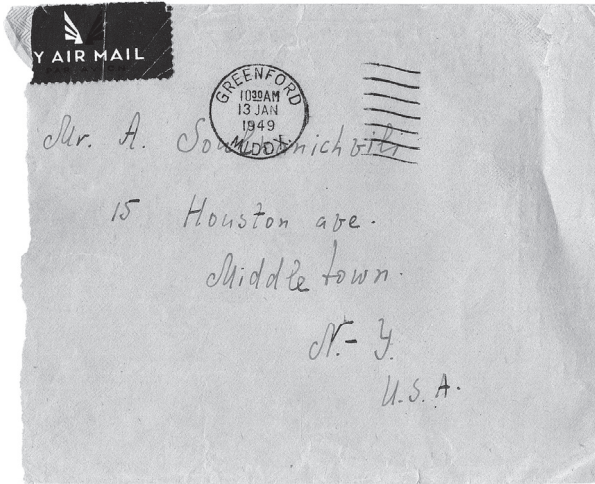 Y AIR MAIL
GREENFORD
10 30 AM
13 JAN
1949
MIDDX.
Mr. A.
15 Houston ave.
Middletown.
N.- Y.
U.S.A.